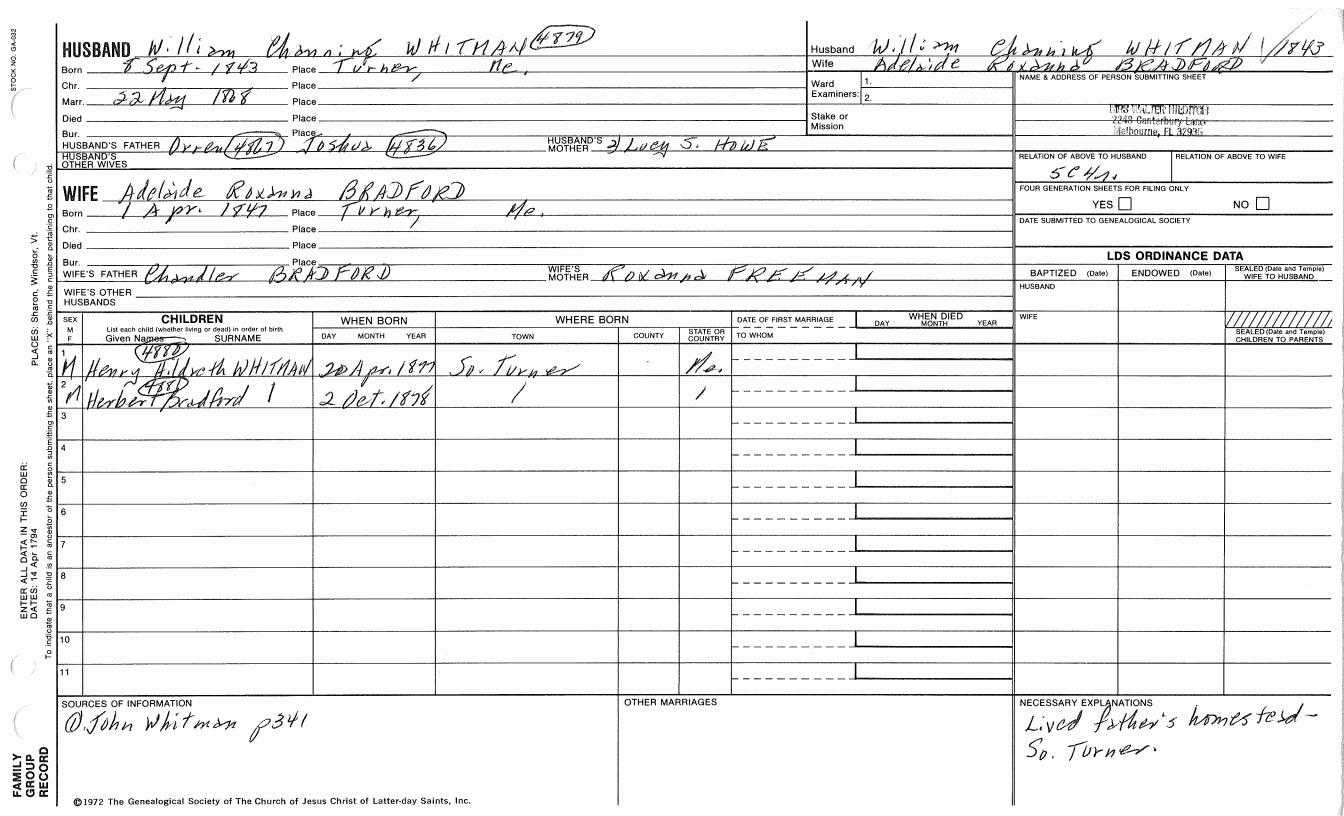 STOCK NO. GA-032
PLACES: Sharon, Windsor, Vt.
ENTER ALL DATA IN THIS ORDER:
DATES: 14 Apr 1794
To indicate that a child is an ancestor of the person submitting the sheet, place an "X" behind the number pertaining to that child.
FAMILY GROUP RECORD
HUSBAND William Channing WHITMAN 4879
Born 8 Sept. 1843 Place Turner, Me.
Chr. Place
Marr. 22 May 1868 Place
Died Place
Bur. Place
HUSBAND'S FATHER Orren 4867 Joshua 4836 HUSBAND'S MOTHER 2) Lucy S. HOWE
HUSBAND'S OTHER WIVES
WIFE Adelaide Roxanna BRADFORD
Born 1 Apr. 1847 Place Turner, Me.
Chr. Place
Died Place
Bur. Place
WIFE'S FATHER Chandler BRADFORD WIFE'S MOTHER Roxanna FREEMAN
WIFE'S OTHER HUSBANDS
Husband William Channing WHITMAN 1843
Wife Adelaide Roxanna BRADFORD
Ward Examiners: 1.
2.
Stake or Mission
NAME & ADDRESS OF PERSON SUBMITTING SHEET
MRS WALTER
2248 Canterbury Lane
Melbourne, FL 32935
RELATION OF ABOVE TO HUSBAND RELATION OF ABOVE TO WIFE
5C4r.
FOUR GENERATION SHEETS FOR FILING ONLY
YES NO
DATE SUBMITTED TO GENEALOGICAL SOCIETY
LDS ORDINANCE DATA
BAPTIZED (Date) ENDOWED (Date) SEALED (Date and Temple) WIFE TO HUSBAND
HUSBAND
WIFE
SEALED (Date and Temple) CHILDREN TO PARENTS
SEX M F CHILDREN WHEN BORN WHERE BORN DATE OF FIRST MARRIAGE WHEN DIED
List each child (whether living or dead) in order of birth
Given Names SURNAME DAY MONTH YEAR TOWN COUNTY STATE OR COUNTRY TO WHOM DAY MONTH YEAR
4880
1 M Henry Hildreth WHITMAN 20 Apr. 1877 So. Turner Me.
4881
2 M Herbert Bradford 2 Oct. 1878
3
4
5
6
7
8
9
10
11
SOURCES OF INFORMATION
① John Whitman p341
OTHER MARRIAGES
NECESSARY EXPLANATIONS
Lived father's homestead -
So. Turner.
©1972 The Genealogical Society of The Church of Jesus Christ of Latter-day Saints, Inc.